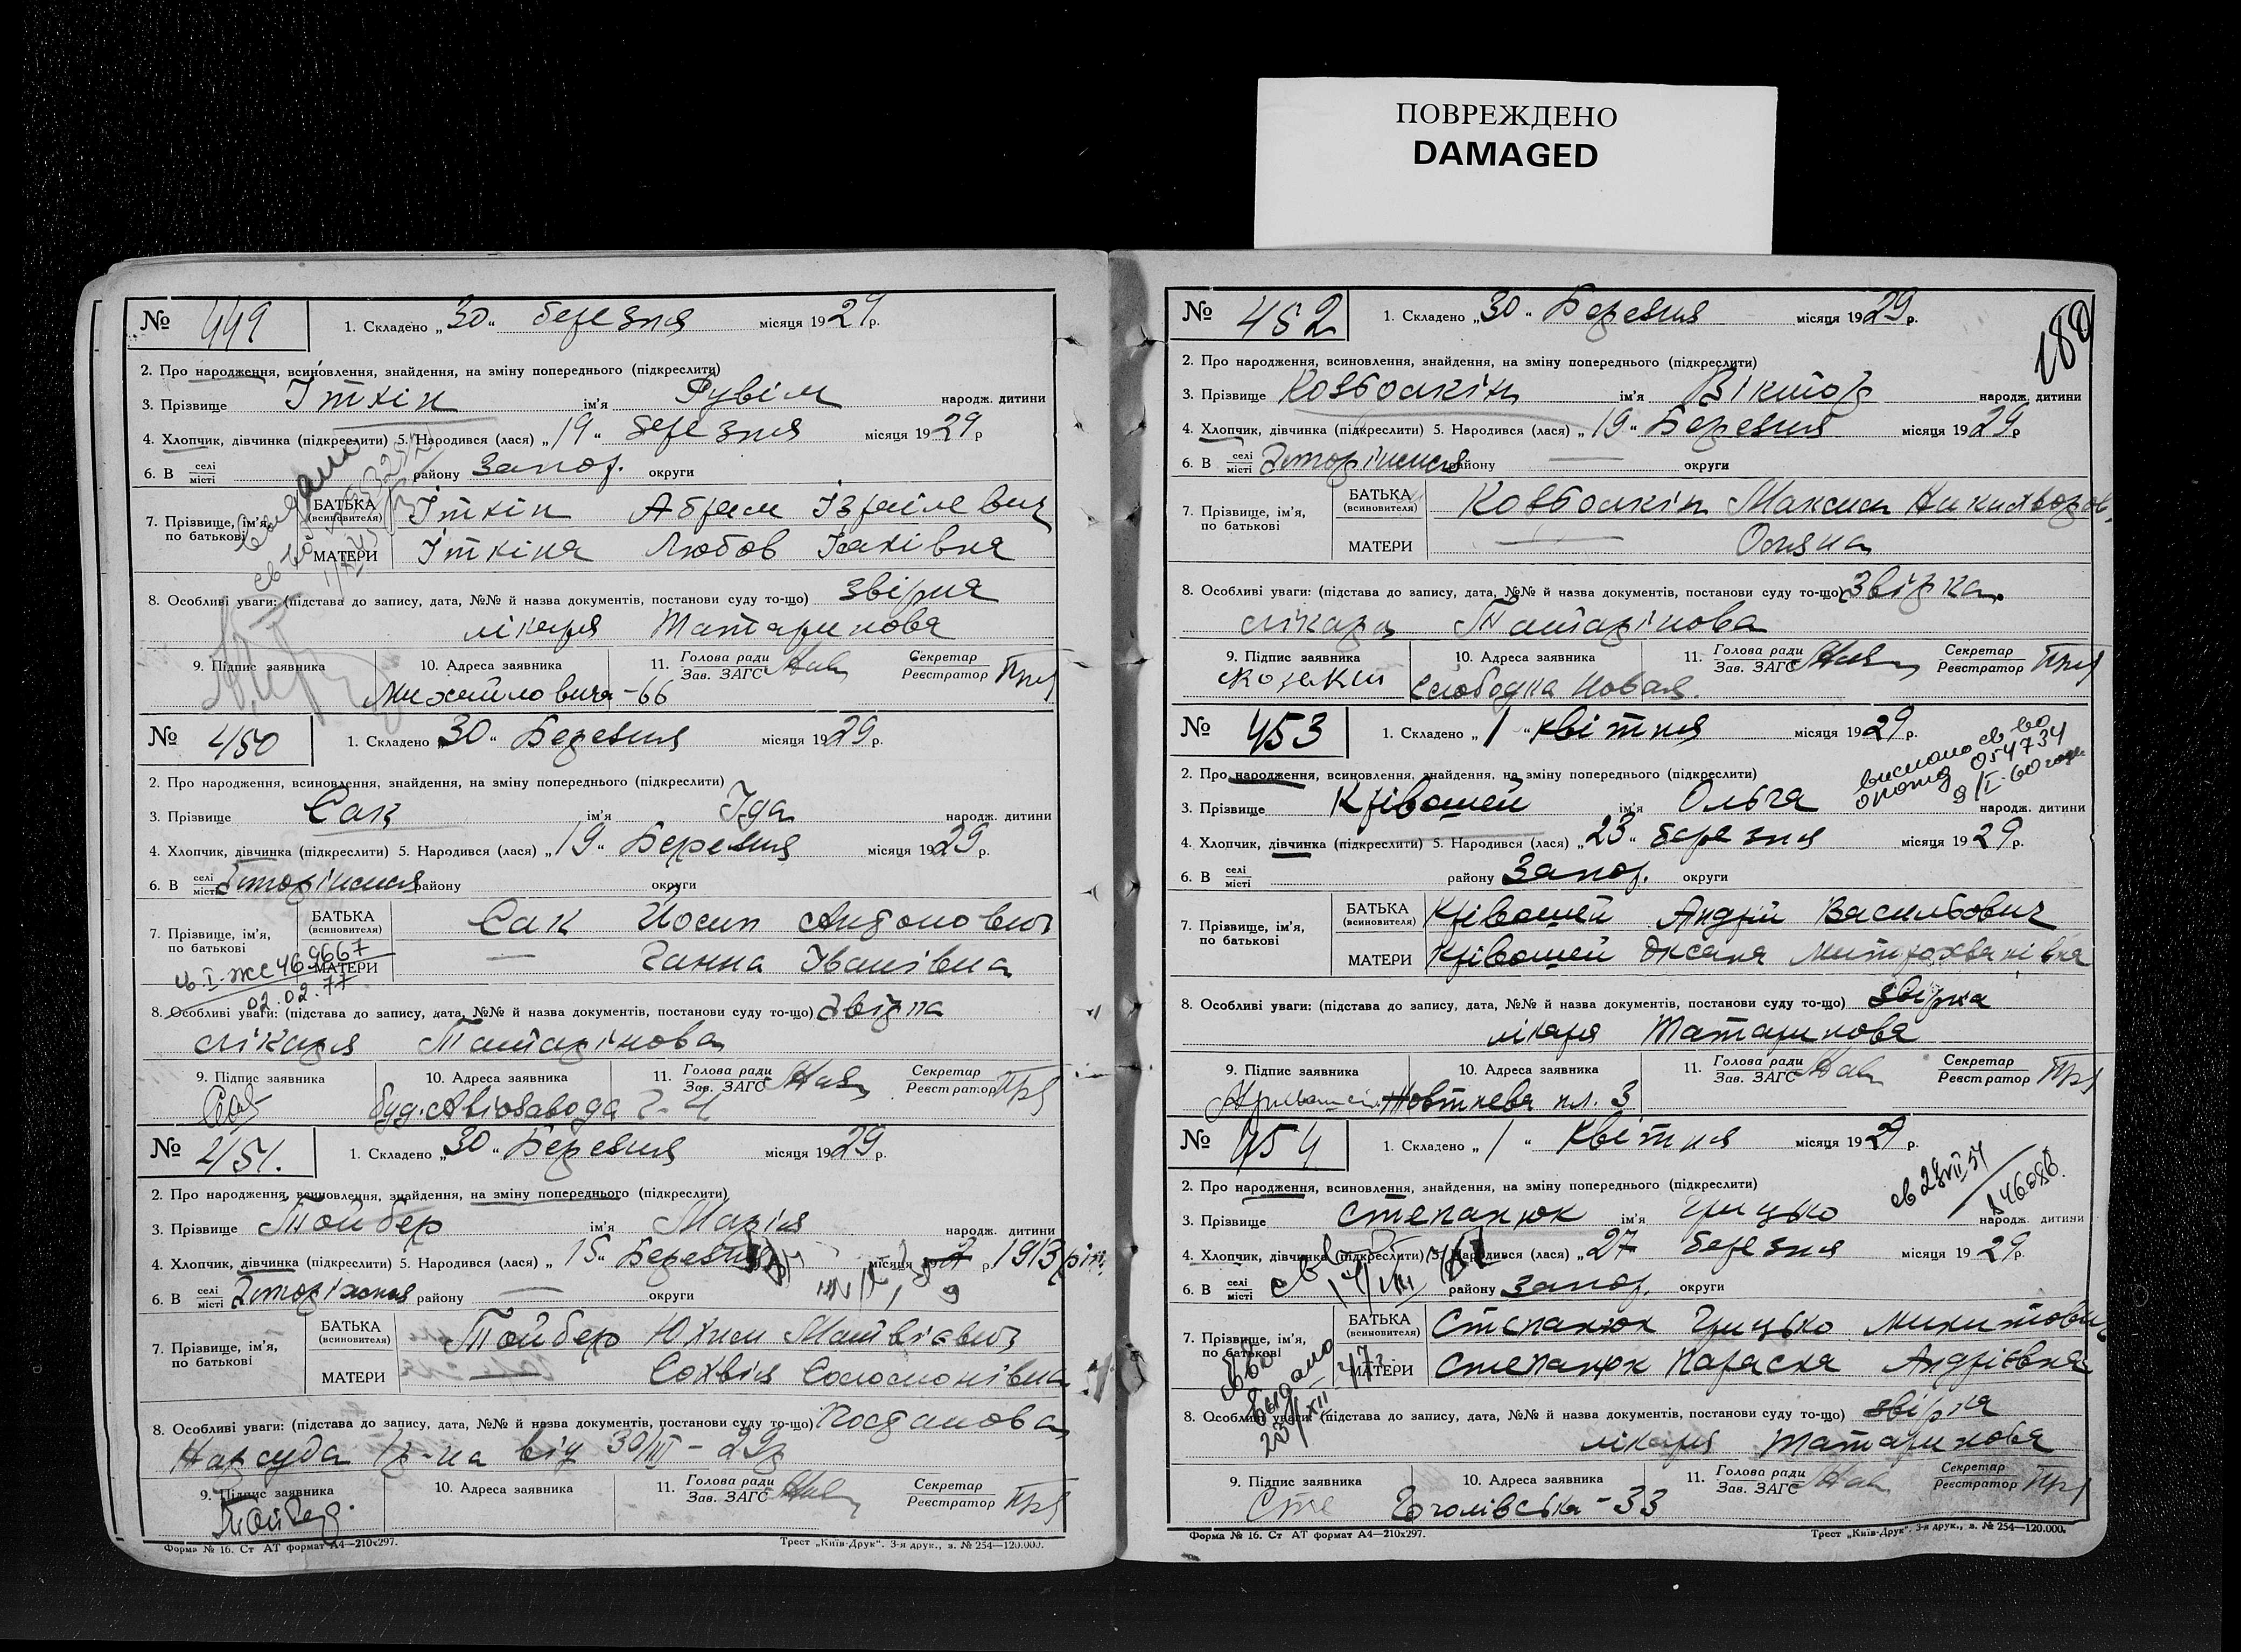 ПОВРЕЖДЕНО
DAMAGED
№ 449
1. Складено „30“ березня місяця 1929 р.
2. Про народження, всиновлення, знайдення, на зміну попереднього (підкреслити)
3. Прізвище Іткін ім'я Рувім народж. дитини
4. Хлопчик, дівчинка (підкреслити) 5. Народився (лася) „19“ березня місяця 1929 р
6. В селі місті району Запор. округи
7. Прізвище, ім'я, по батькові
БАТЬКА (всиновителя) Іткін Абрам Ізраілевич
МАТЕРИ Іткіна Любов
8. Особливі уваги: (підстава до запису, дата, №№ й назва документів, постанови суду то-що) звірка
лікаря Татаринова
9. Підпис заявника 10. Адреса заявника 11. Голова ради Зав. ЗАГС Секретар Реєстратор
Михайловича-66
№ 450
1. Складено „30“ Березня місяця 1929 р.
2. Про народження, всиновлення, знайдення, на зміну попереднього (підкреслити)
3. Прізвище Сак ім'я Іда народж. дитини
4. Хлопчик, дівчинка (підкреслити) 5. Народився (лася) „19“ Березня місяця 1929 р.
6. В селі місті району округи
7. Прізвище, ім'я, по батькові
БАТЬКА (всиновителя) Сак Йосип Антонович
МАТЕРИ — Ганна Іванівна
469667
02.02.77
8. Особливі уваги: (підстава до запису, дата, №№ й назва документів, постанови суду то-що) Звірка
лікаря Татарінова
9. Підпис заявника 10. Адреса заявника 11. Голова ради Зав. ЗАГС Секретар Реєстратор
Сак буд. Авіозавода
№ 451.
1. Складено „30“ Березня місяця 1929 р.
2. Про народження, всиновлення, знайдення, на зміну попереднього (підкреслити)
3. Прізвище Тойбер ім'я Марія народж. дитини
4. Хлопчик, дівчинка (підкреслити) 5. Народився (лася) „15“ Березня місяця р 1913 рік
6. В селі місті району — округи
7. Прізвище, ім'я, по батькові
БАТЬКА (всиновителя) Тойбер Юхим Матвієвич
МАТЕРИ — Софвія Соломонівна
8. Особливі уваги: (підстава до запису, дата, №№ й назва документів, постанови суду то-що) Постанова
Нарсуда від 30/III-29р
9. Підпис заявника 10. Адреса заявника 11. Голова ради Зав. ЗАГС Секретар Реєстратор
Тойбер.
Форма № 16. Ст АТ формат А4—210х297. Трест „Київ-Друк“. 3-я друк., з. № 254—120.000.
180
№ 452
1. Складено „30“ Березня місяця 1929 р.
2. Про народження, всиновлення, знайдення, на зміну попереднього (підкреслити)
3. Прізвище Ковбошкін ім'я Віктор народж. дитини
4. Хлопчик, дівчинка (підкреслити) 5. Народився (лася) „19“ Березня місяця 1929 р
6. В селі місті району — округи
7. Прізвище, ім'я, по батькові
БАТЬКА (всиновителя) Максим
МАТЕРИ —
8. Особливі уваги: (підстава до запису, дата, №№ й назва документів, постанови суду то-що) Звірка
лікара Татарінова
9. Підпис заявника 10. Адреса заявника 11. Голова ради Зав. ЗАГС Секретар Реєстратор
Слободка Новая.
№ 453
1. Складено „1“ квітня місяця 1929 р.
054734
9/I-60 года
2. Про народження, всиновлення, знайдення, на зміну попереднього (підкреслити)
3. Прізвище Крівошей ім'я Ольга народж. дитини
4. Хлопчик, дівчинка (підкреслити) 5. Народився (лася) „23“ березня місяця 1929 р.
6. В селі місті району Запор. округи
7. Прізвище, ім'я, по батькові
БАТЬКА (всиновителя) Крівошей Андрій Васильович
МАТЕРИ Крівошей Оксана Митрохванівна
8. Особливі уваги: (підстава до запису, дата, №№ й назва документів, постанови суду то-що) звірка
лікаря Татаринова
9. Підпис заявника 10. Адреса заявника 11. Голова ради Зав. ЗАГС Секретар Реєстратор
Жовтнева пл. 3
№ 454
1. Складено „1“ Квітня місяця 1929 р.
2. Про народження, всиновлення, знайдення, на зміну попереднього (підкреслити)
3. Прізвище Степанюк ім'я Грицько народж. дитини
4. Хлопчик, дівчинка (підкреслити) 5. Народився (лася) „27 березня місяця 1929 р.
6. В селі місті району Запор. округи
7. Прізвище, ім'я, по батькові
БАТЬКА (всиновителя) Степанюк Грицько Микитович
МАТЕРИ Степанюк Параска Андрієвна
8. Особливі уваги: (підстава до запису, дата, №№ й назва документів, постанови суду то-що) звірка
лікаря Татаринова
9. Підпис заявника 10. Адреса заявника 11. Голова ради Зав. ЗАГС Секретар Реєстратор
Сте Гоголівська-33
Форма № 16. Ст АТ формат А4—210х297. Трест „Київ-Друк“. 3-я друк., з. № 254—120.000.